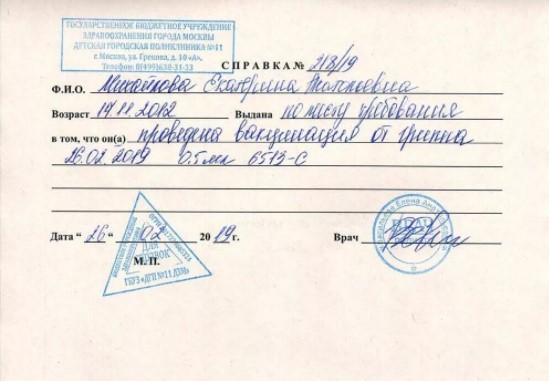 ГОСУДАРСТВЕННОЕ БЮДЖЕТНОЕ УЧРЕЖДЕНИЕ
ЗДРАВООХРАНЕНИЯ ГОРОДА МОСКВЫ
ДЕТСКАЯ ГОРОДСКАЯ ПОЛИКЛИНИКА №11
г. Москва, ул. Грекова, д. 10 «А»,
Телефон: 8(499)638-31-33
СПРАВКА № 218/19
Ф.И.О. Михайлова Екатерина
Возраст 14.11.2012 Выдана по месту требования
в том, что он(а) проведена вакцинация от гриппа
26.02.2019 0.5 мл 6513-С
Дата " 26 " 02 2019 г. Врач
ДЛЯ
СПРАВОК
М. П.
ГБУЗ «ДГП №11 ДЗМ»
Елена
ВРАЧ